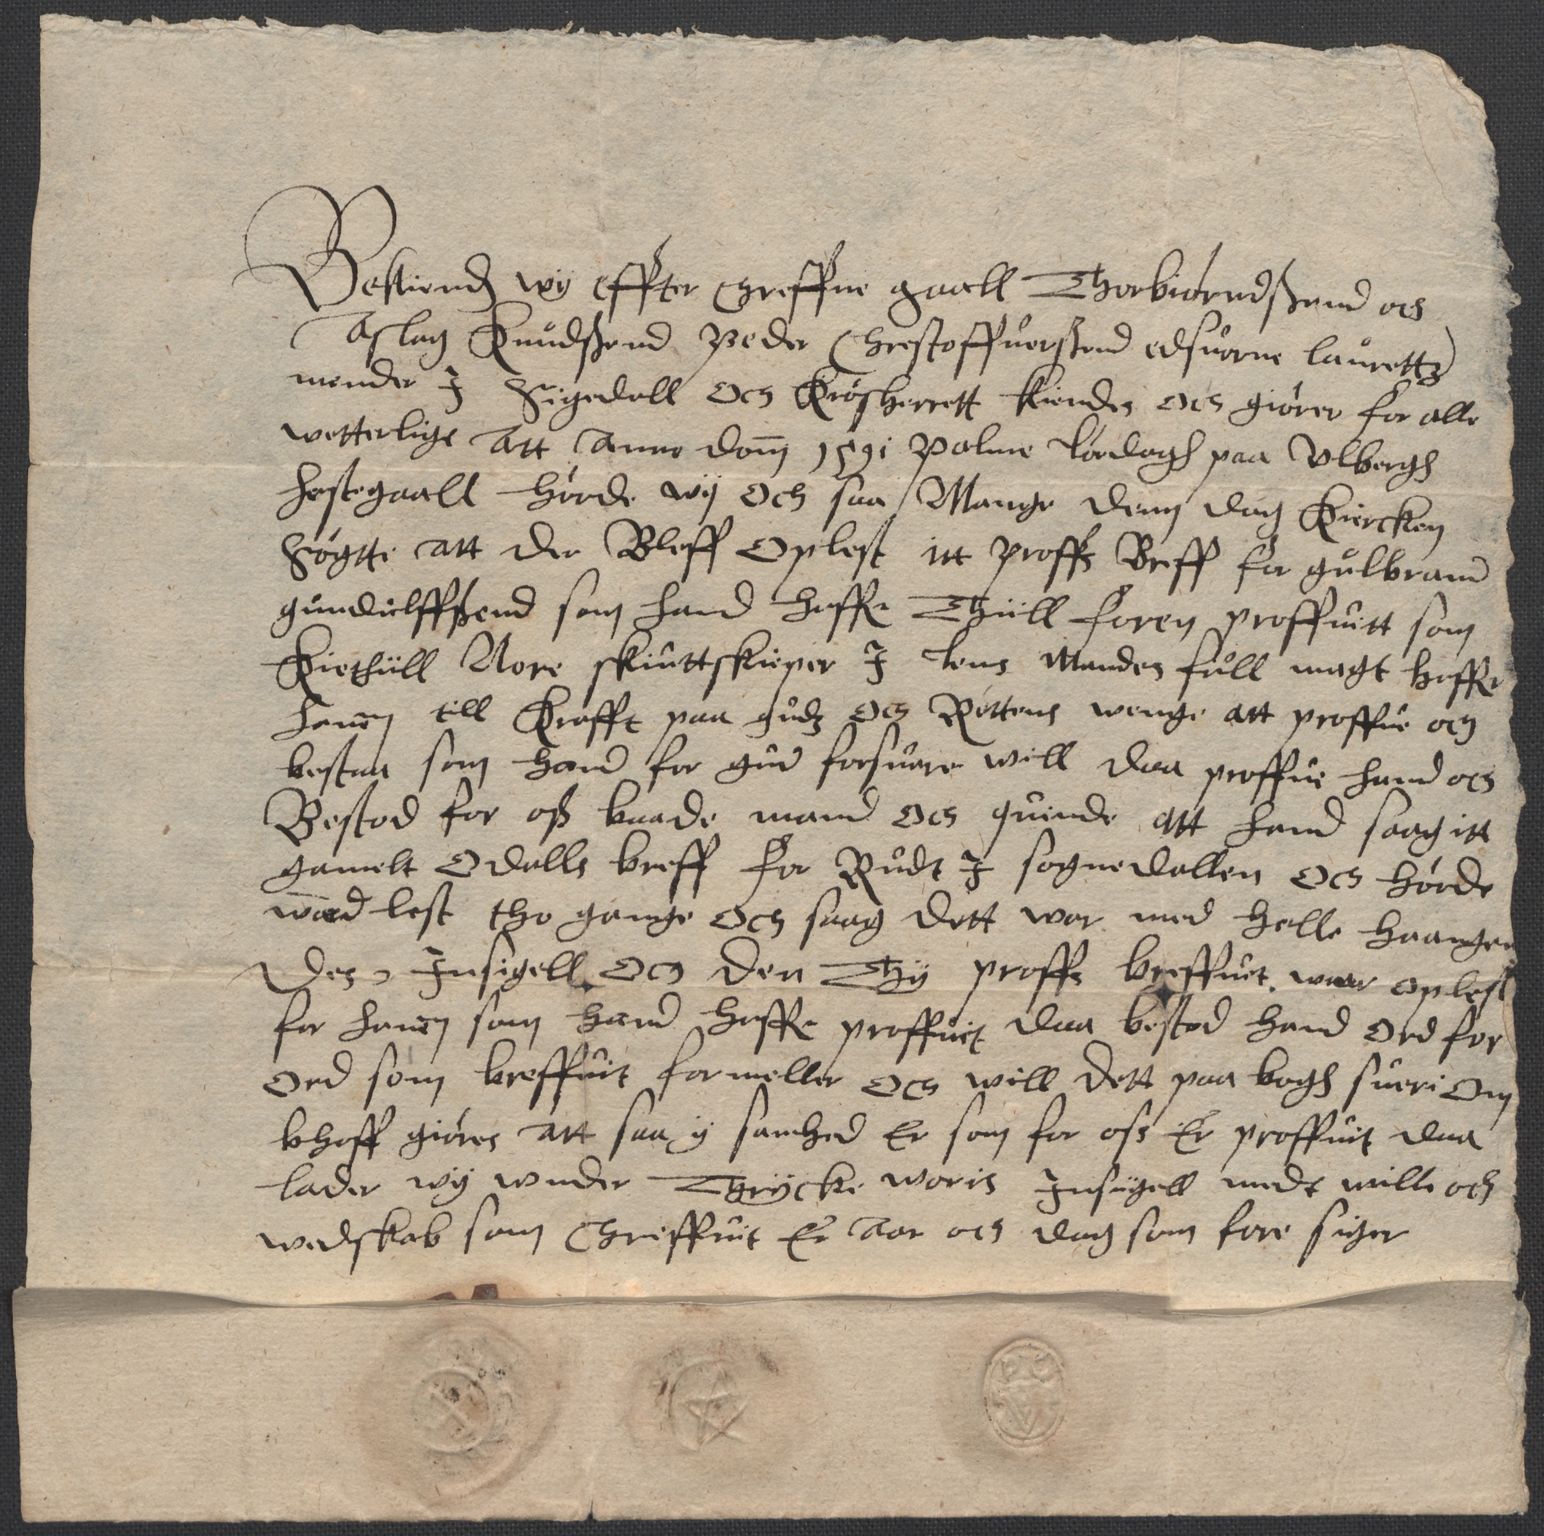 Bekiend wij Effter Chreffne gaall Thorbiørndßend och
Aslag Knudßend Peder Chrestoffuerßend edsuorne laurettz
mender J Sigedall Och Krøsherrett kiendes och giører for alle
wetterligt Att Anno dom 1591 Palme lørdagh paa Vlbergh
hestegaall hørde wij Och saa Mange denn dag Kiercken
Søgtte att der Bleff Oplest itt proffs Breff for gulbrand
gundulffßend som hand haffr Thiill foren proffuitt som
Kiethiill Nore skiuttskieper J lens Mandes full magt haffr
hannem till Krafft paa gudz Och Rettens wenge att proffue och
bestaa som hand for gud forsuare will daa proffue hand och
Bestod for oß baade mand Och quinde att hand saag itt
gamelt Odalls breff for Rudt J sognedallen Och hørde
wærd lest tho gange Och saag dett war med helle haangen
des Jnsigell Och den Thij proffs breffuet waar oplest
for hannem som hand haffr proffuit daa bestod hand Ord for
Ord som breffuit formeller Och will dett paa bogh sueri Om
bhoff giøres att saa ij sanhed Er som for oss Er proffuit daa
lader wij wnder Thrycke woris Jnsigell medt wille och
wedskab som Chreffuit Er Aar och dag som fore siger